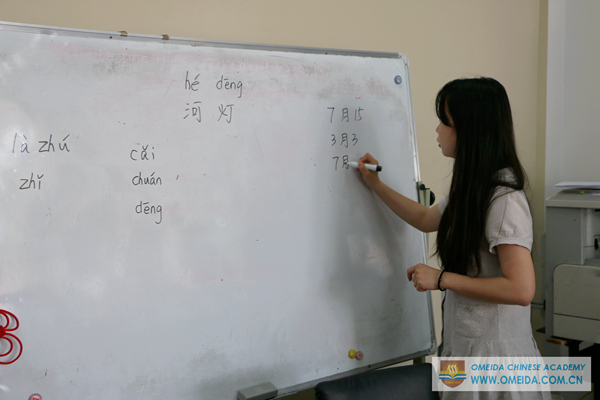 hé dēng
河 灯
là zhú
zhǐ
cǎi
chuán
dēng
7月15
3月3
7月
OMEIDA CHINESE ACADEMY
WWW.OMEIDA.COM.CN